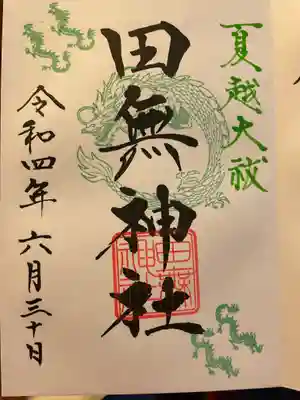 夏越大祓
田無神社
令和四年六月三十日